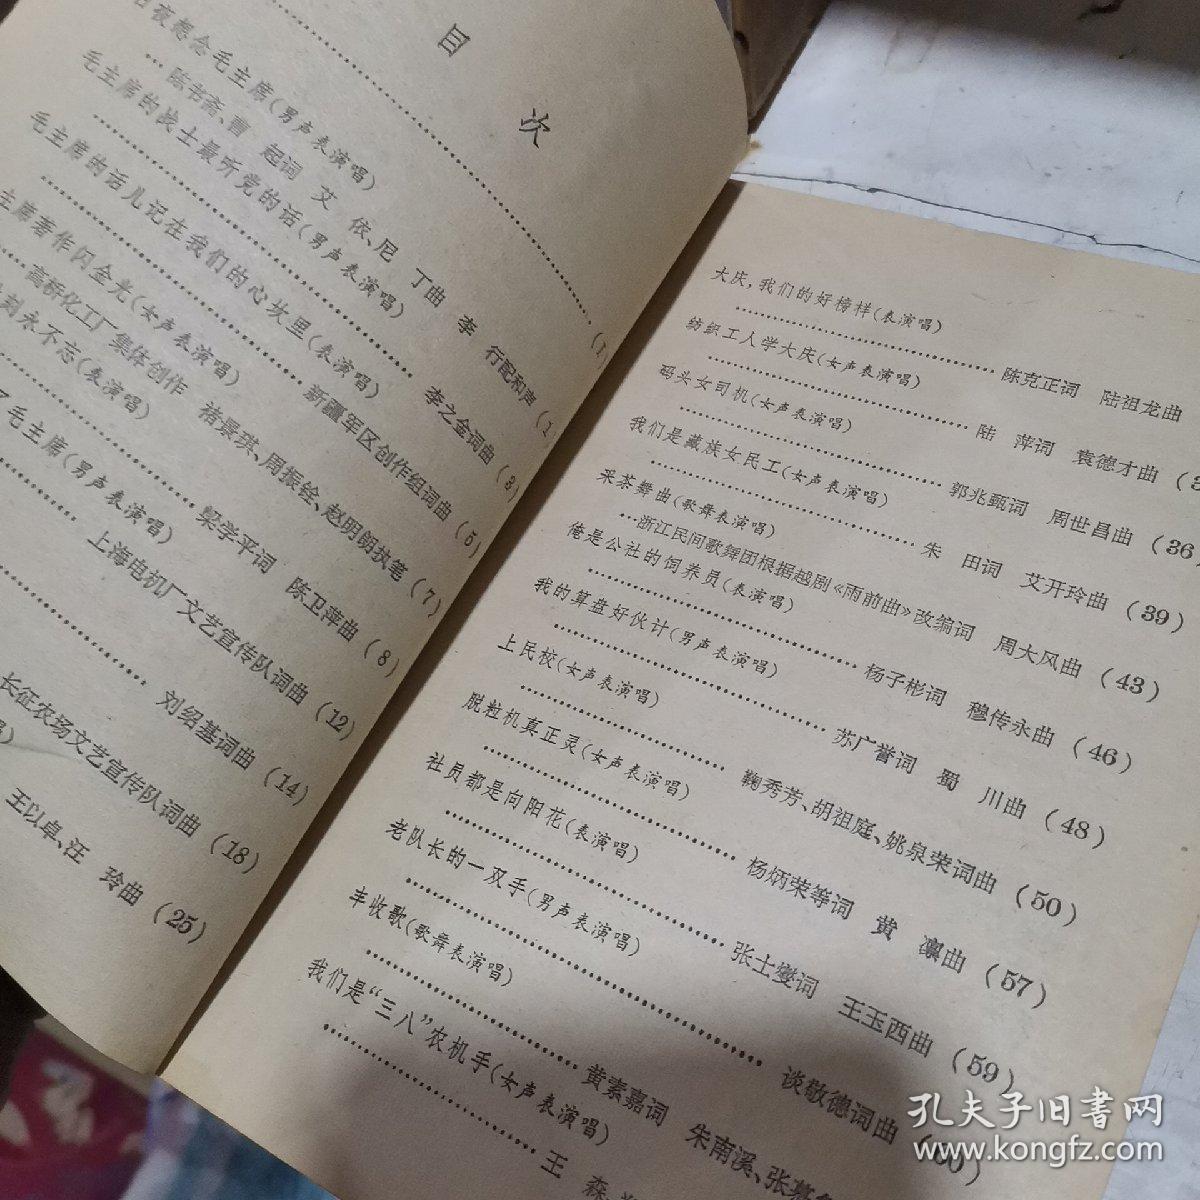 目 次
日夜想念毛主席(男声表演唱)
…陈书斋、曹 起词 艾 依、尼 丁曲 李 行配和声(1)
毛主席的战士最听党的话(男声表演唱)
李之金词曲(3)
毛主席的话儿记在我们的心坎里(表演唱)
新疆军区创作组词曲(5)
主席著作闪金光(女声表演唱)
高桥化工厂集体创作 褚景琪、周振铨、赵明朗执笔(7)
刻永不忘(表演唱)
梁学平词 陈卫萍曲(8)
了毛主席(男声表演唱)
上海电机厂文艺宣传队词曲(12)
刘绍基词曲(14)
长征农场文艺宣传队词曲(18)
唱)
王以卓、汪 玲曲(25)
大庆，我们的好榜样(表演唱)
陈克正词 陆祖龙曲
纺织工人学大庆(女声表演唱)
陆 萍词 袁德才曲
码头女司机(女声表演唱)
郭兆甄词 周世昌曲(36)
我们是藏族女民工(女声表演唱)
朱 田词 艾开玲曲(39)
采茶舞曲(歌舞表演唱)
…浙江民间歌舞团根据越剧《雨前曲》改编词 周大风曲(43)
俺是公社的饲养员(表演唱)
杨子彬词 穆传永曲(46)
我的算盘好伙计(男声表演唱)
苏广誉词 蜀 川曲(48)
上民校(女声表演唱)
鞠秀芳、胡祖庭、姚泉荣词曲(50)
脱粒机真正灵(女声表演唱)
杨炳荣等词 黄 凛曲(57)
社员都是向阳花(表演唱)
张士燮词 王玉西曲(59)
老队长的一双手(男声表演唱)
谈敬德词曲(60)
丰收歌(歌舞表演唱)
黄素嘉词 朱南溪、张慕
我们是“三八”农机手(女声表演唱)
王 森
孔夫子旧书网
www.kongfz.com